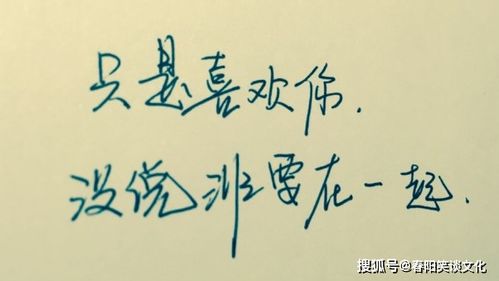 只是喜欢你.
没说非要在一起.
搜狐号@春阳笑谈文化